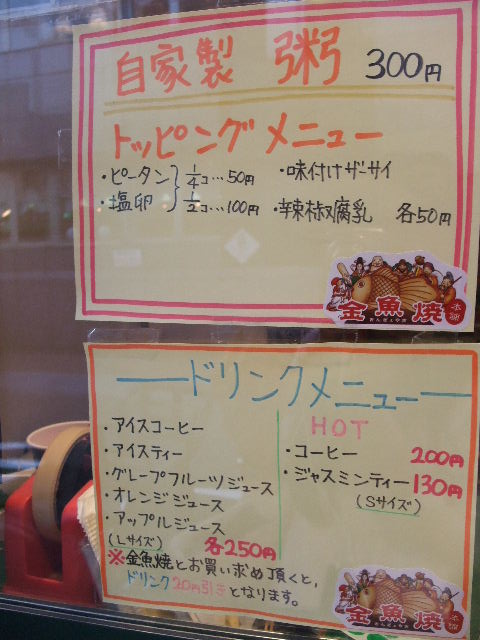 自家製 粥 300円
トッピングメニュー
・ピータン
・塩卵
1/4コ…50円
1/2コ…100円
・味付けザーサイ
・辛辣椒腐乳 各50円
金魚焼 本舗
ドリンクメニュー
・アイスコーヒー
・アイスティー
・グレープフルーツジュース
・オレンジジュース
・アップルジュース
(Lサイズ) 各250円
HOT
・コーヒー 200円
・ジャスミンティー 130円
(Sサイズ)
※金魚焼とお買い求め頂くと、
ドリンク20円引きとなります。
金魚焼